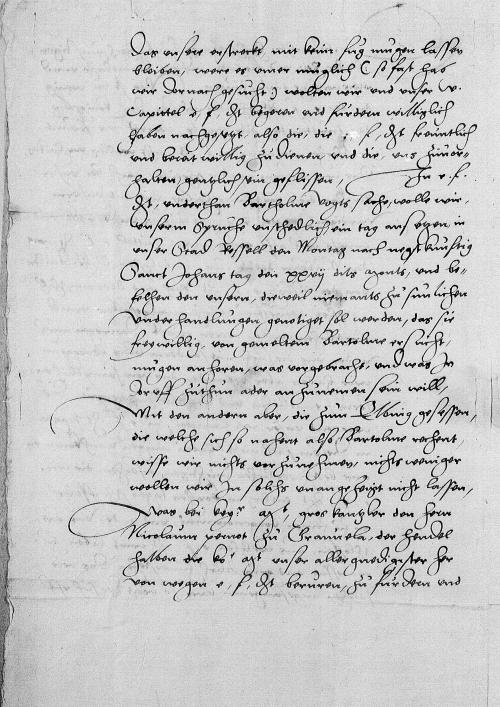 Das unsere erstreckt mit keim fug mugen lassen
bleiben, were es ymer muglich (so fast hab
wir dornach gesucht) wolten wir und unser w.
Capittel e. f. dt begeren und furdern williglich
haben nachgesetzt, also die, die e. f. dt freuntlich
und berait willig zu dienen, und die, uns zuuor
halten, gentzlich sein geflissen, In e. f.
dt, underthan Bartholme Vogts sache, wolle wir,
unserm Spruche unschedlich ein tag ansetzen, in
unser Stad Ressell den Montag nach negst kunfftig
Sanct Johans tag den xxvij dits, und be
felhen den unsern, dieweil niemants zu sunlichen
underhandlungen genotiget sol werden, das sie
freywillig von gemeltem Bartolme ersucht,
mugen anhoren, was vorgebracht, und was Jn
druff zuthun ader anzunemen sein will,
Mit den andern aber, die zum Elbing gesessen,
die welche sich so nahent also Bartolme rechent,
wisse wir nichts vorzunehmen, nichts weniger
wollen wir Jn solchs unangezeigt nicht lassen,
Was bei, gros kantzler den hern
Nicolaum zu Granuela, der hendel
halben die unser allergnedigister her
von wegen e. f. dt beruren, zu furdern und